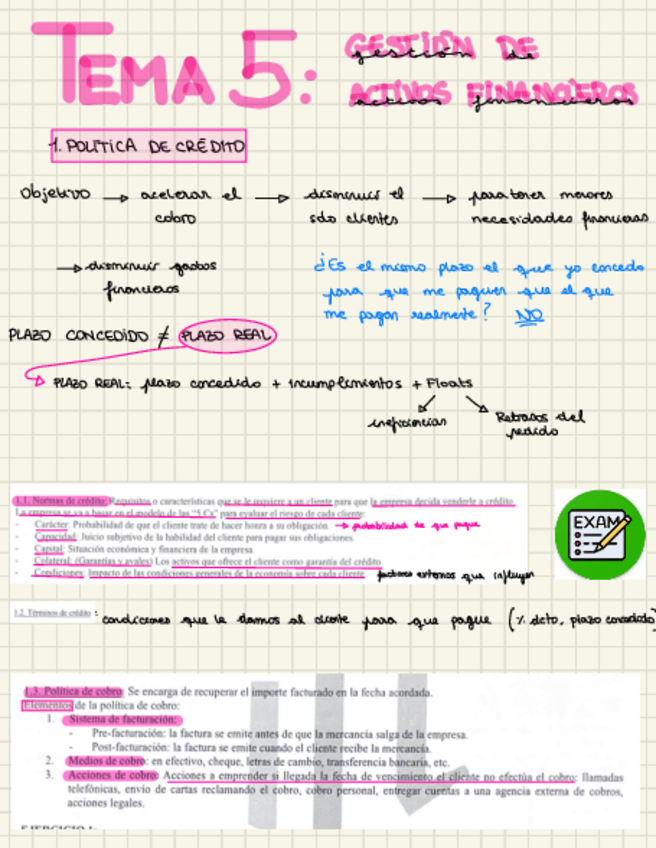 TEMA 5: GESTIÓN DE
ACTIVOS FINANCIEROS
1. POLÍTICA DE CRÉDITO
Objetivo → acelerar el → disminuir el → para tener menores
cobro sdo clientes necesidades financieras
→ disminuir gastos
financieros
¿Es el mismo plazo el que yo concedo
para que me paguen que el que
me pagan realmente? NO
PLAZO CONCEDIDO ≠ PLAZO REAL
PLAZO REAL: plazo concedido + incumplimientos + Floats
ineficiencias Retrasos del
pedido
1.1. Normas de crédito: Requisitos o características que se le requiere a un cliente para que la empresa decida venderle a crédito.
La empresa se va a basar en el modelo de las "5 Cs" para evaluar el riesgo de cada cliente:
- Carácter: Probabilidad de que el cliente trate de hacer honra a su obligación. → probabilidad de que pague
- Capacidad: Juicio subjetivo de la habilidad del cliente para pagar sus obligaciones.
- Capital: Situación económica y financiera de la empresa.
- Colateral: (Garantías y avales) Los activos que ofrece el cliente como garantía del crédito
- Condiciones: Impacto de las condiciones generales de la economía sobre cada cliente. factores externos que influyen
EXAM
1.2. Términos de crédito: condiciones que le damos al cliente para que pague (% dcto, plazo concedido)
1.3. Política de cobro: Se encarga de recuperar el importe facturado en la fecha acordada.
Elementos de la política de cobro:
1. Sistema de facturación:
- Pre-facturación: la factura se emite antes de que la mercancía salga de la empresa.
- Post-facturación: la factura se emite cuando el cliente recibe la mercancía.
2. Medios de cobro: en efectivo, cheque, letras de cambio, transferencia bancaria, etc.
3. Acciones de cobro: Acciones a emprender si llegada la fecha de vencimiento el cliente no efectúa el cobro: llamadas
telefónicas, envío de cartas reclamando el cobro, cobro personal, entregar cuentas a una agencia externa de cobros,
acciones legales.